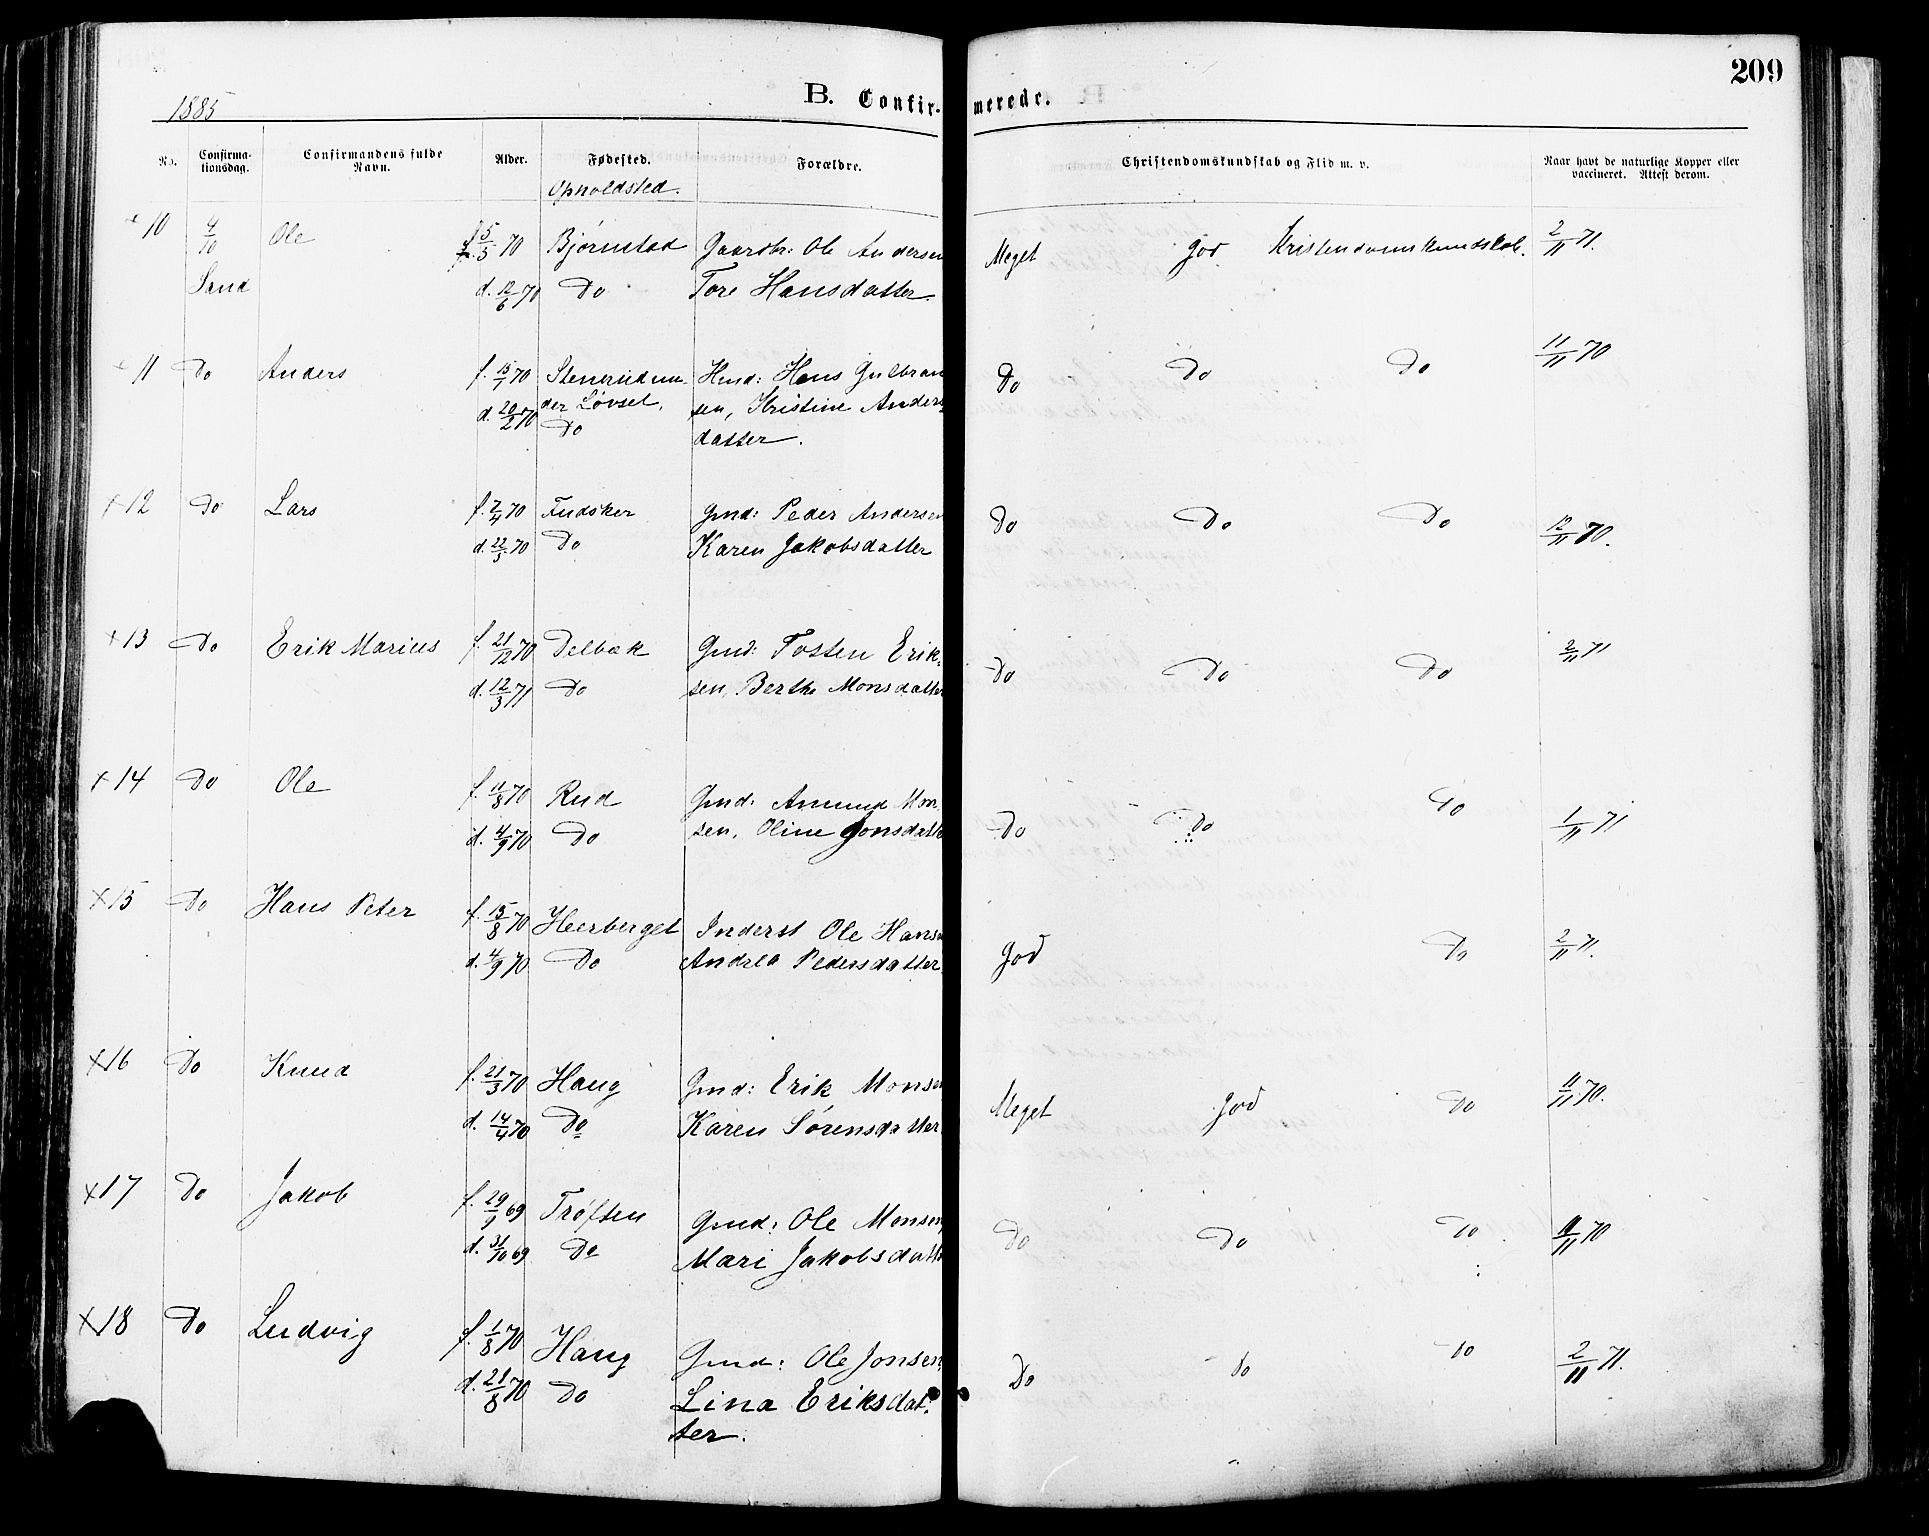 209
B. Confir- merede.
1885
No. Confirma- tionsdag. Confirmandens fulde Navn. Alder. Fødested. Forældre. Christendomskundskab og Flid m. v. Naar havt de naturlige Kopper eller vaccineret. Attest derom.
Opholdsted.
10 4/10 Ole 5/5 70 Bjørnstad Gaardbr: Ole Andersen Meget god Kristendomskundskab. 2/11 71.
Sand d. 12/6 70 Do Tore Hansdatter
11 Do Anders f. 15/1 70 Stenerud un- Hmd: Hans Gulbran Do Do Do 11/11 70
d. 20/2 70 der Løvset, sen, Kristine Anders
Do datter.
+12 Do Lars f. 2/4 70 Fudsker Gmd: Peder Andersen Do Do Do 12/11 70.
d. 22/5 70 Do Karen Jakobsdatter
+13 Do Erik Marius f. 21/12 70 Delbæk Gmd: Tosten Erik- Do Do Do 2/11 71
d. 12/3 71 Do sen, Berthe Monsdatter
+14 Do Ole f. 11/8 70 Rud Gmd: Amund Mon Do Do Do 1/11 71
d. 4/9 70 Do sen, Oline Jonsdatte
+15 Do Hans Peter f. 15/8 70 Heerberget Inderst Ole Hans god Do 2/11 71.
d. 4/9 70 Do Andrea Pedersdatter
+16 Do Knud f. 21/3 70 Haug Gmd: Erik Monsen Meget god Do 11/11 70.
d. 14/4 70 Do Karen Sørensdatter
+17 Do Jakob f. 29/9 69 Trøften Gmd: Ole Monsen, Do Do Do 11/11 70
d. 31/10 69 Do Mari Jakobsdatte
+18 Do Ludvig f. 1/8 70 Haug Gmd: Ole Jonsen, Do Do Do 2/11 71.
d. 21/8 70 Do Lina Eriksdat-
ter.